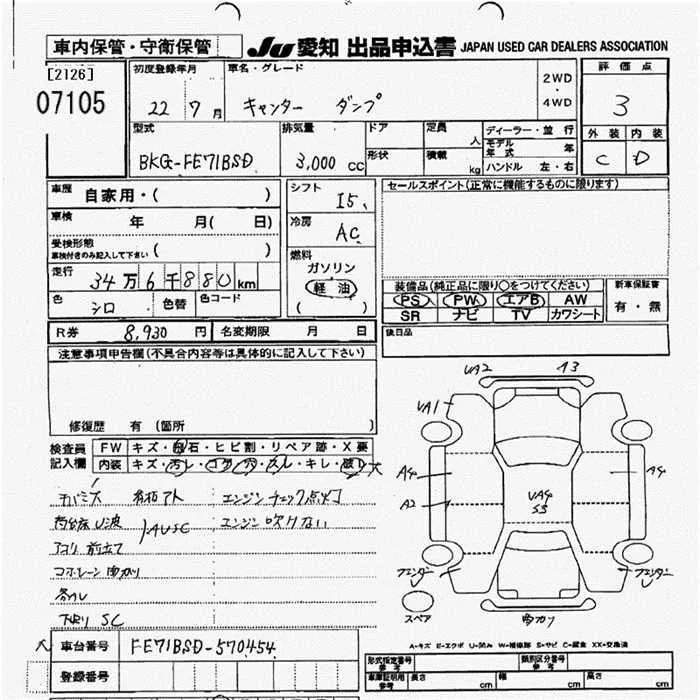 車内保管・守衛保管
JU 愛知 出品申込書 JAPAN USED CAR DEALERS ASSOCIATION
[2126]
07105
初度登録年月
22 7月
車名・グレード
キャンター ダンプ
2WD
・
4WD
評価点
3
外装 内装
C D
型式
BKG-FE71BSD
排気量
3,000 CC
ドア
形状
定員
人
積載
kg
ディーラー・並行
モデル年式 年
ハンドル 左・右
車歴
自家用・( )
車検
年 月( 日)
受検形態
車検付きのみ記入して下さい
( )
走行
34万6千880km
色
シロ
色替
色コード
シフト
I5、
冷房
AC
燃料
ガソリン
軽油
( )
セールスポイント(正常に機能するものに限ります)
装備品(純正品に限り○をつけてください)
PS PW エアB AW
SR ナビ TV カワシート
新車保証書
有・無
後日品
R券
8,930円
名変期限
月 日
注意事項申告欄(不具合内容等は具体的に記入して下さい)
修復歴 有 (箇所 )
検査員
記入欄
FW キズ・飛石・ヒビ割・リペア跡・X要
内装 汚レ・コゲ・穴・スレ・キレ・破レ 大
エンジンチェック点灯
エンジン吹けない
下廻り SC
UA2
A3
UA1
A4
A2
UA4
S3
A4
フェンダー
U
フェンダー
Uリ
スペア
曲ガリ
A-キズ E-エクボ U-凹み W-補修跡 S-サビ C-腐食 XX-交換済
車台番号
FE71BSD-570454
登録番号
形式指定番号
参考
類別区分番号
参考
車庫証明用
参考
長さ cm
幅 cm
高さ cm